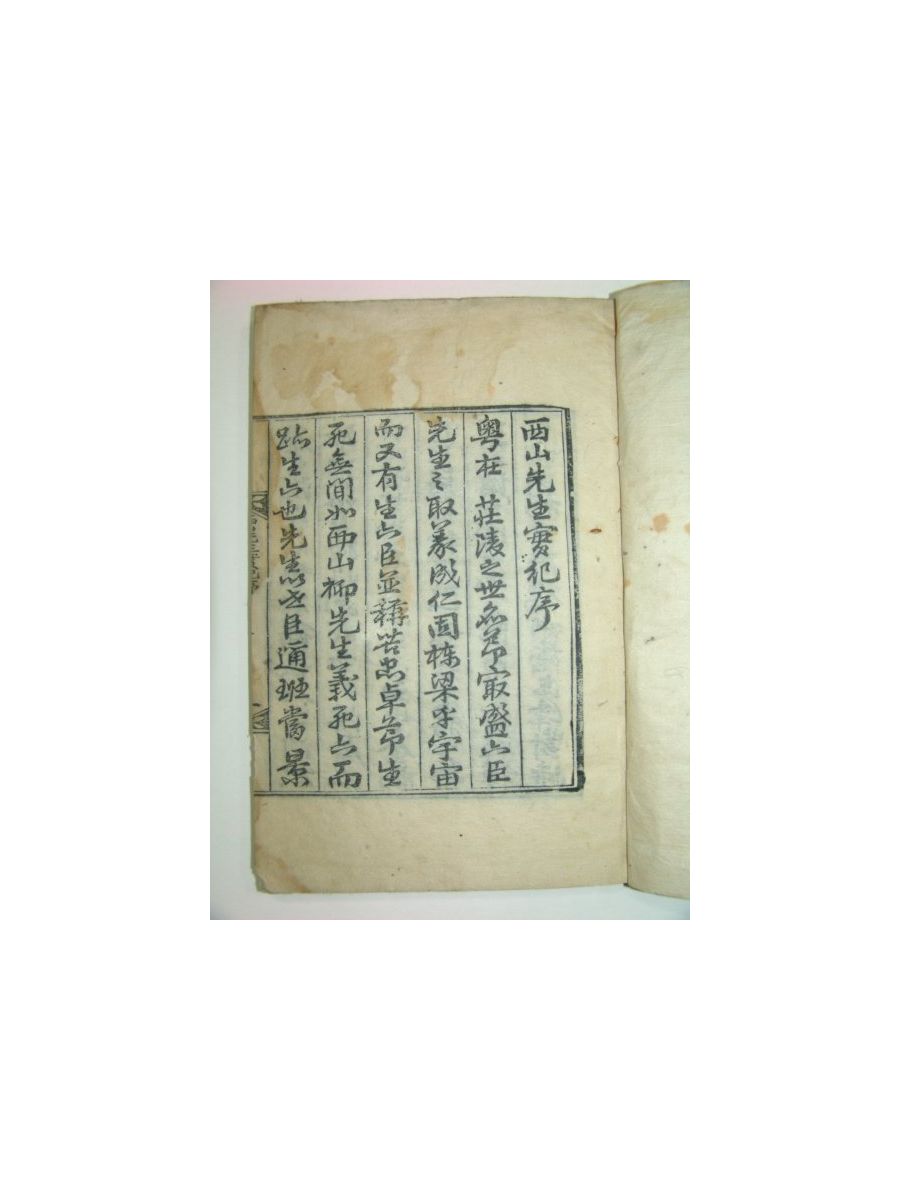 西山先生實紀序
粤在 莊陵之世名節㝡盛六臣
先生之取義成仁固棟梁乎宇宙
而又有生六臣並稱苦忠卓節生
死無間如西山柳先生義死六而
跡生六也先生以世臣通班當景